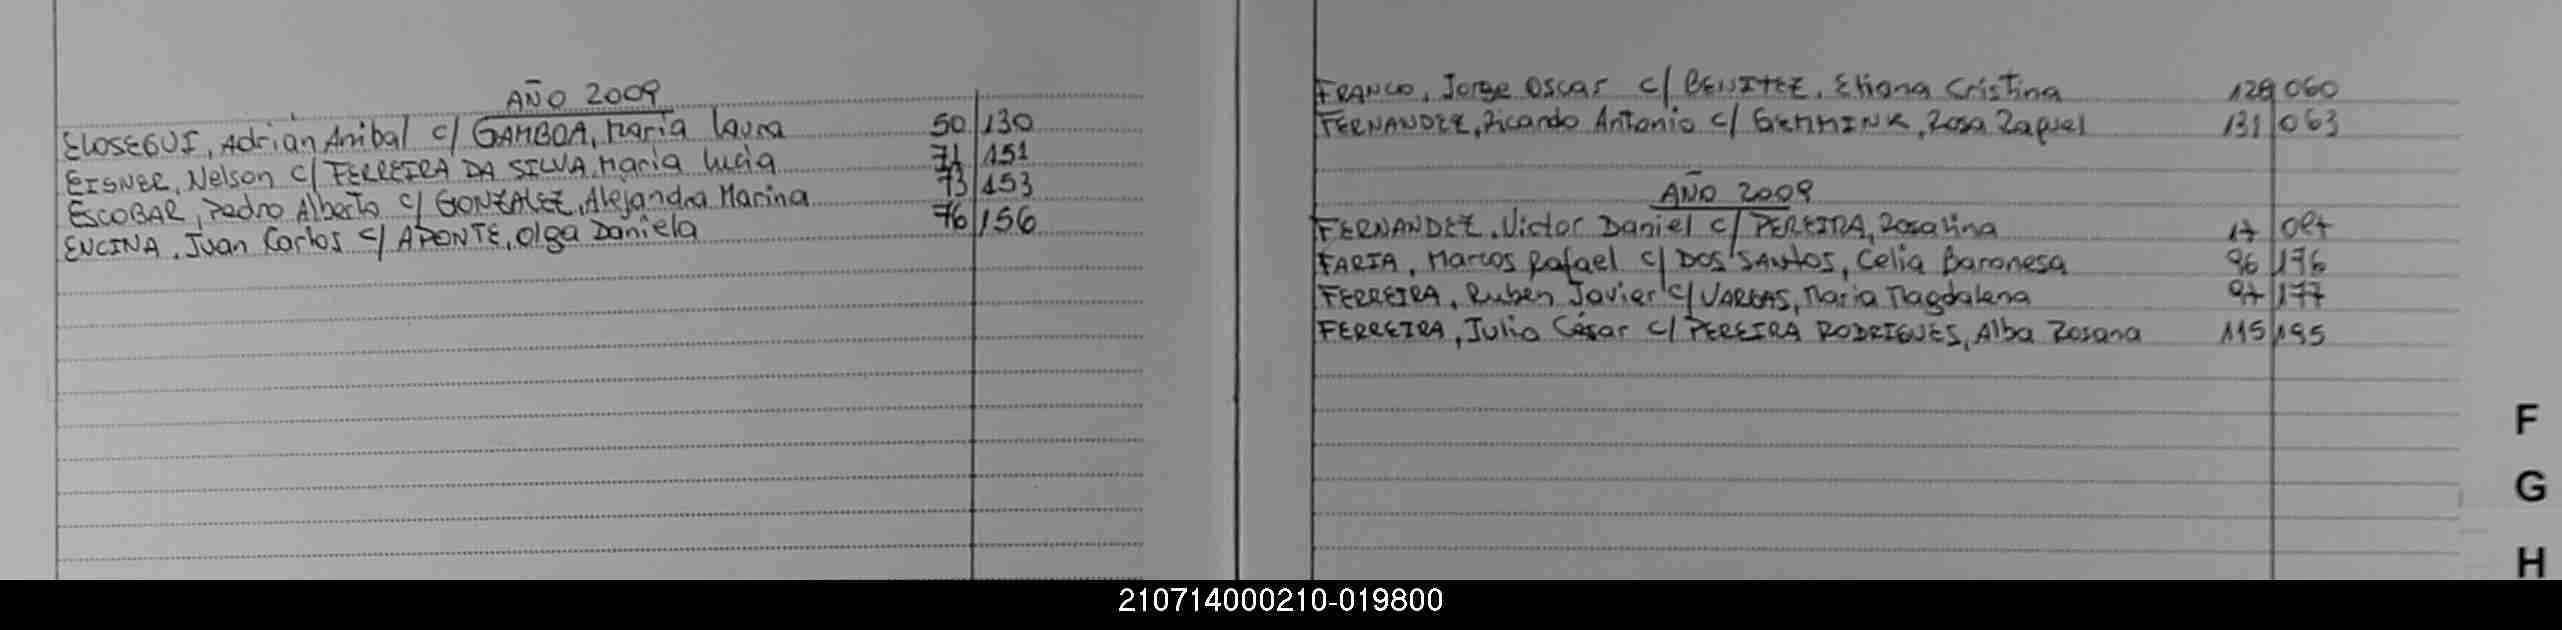 AÑO 2009
ELOSEGUI, Adrián Anibal c/ GAMBOA, María Laura 50 130
EISNER, Nelson c/ FERREIRA DA SILVA, María Lucia 71 151
ESCOBAR, Pedro Alberto c/ GONZALEZ, Alejandra Marina 73 153
ENCINA, Juan Carlos c/ APONTE, Olga Daniela 76 156
FRANCO, Jorge Oscar c/ BENITEZ, Eliana Cristina 128 060
FERNANDEZ, Ricardo Antonio c/ GEMMINK, Rosa Raquel 131 063
AÑO 2009
FERNANDEZ, Victor Daniel c/ PEREIRA, Rosalina 17 087
FARIA, Marcos Rafael c/ DOS SANTOS, Celia Baronesa 96 176
FERREIRA, Ruben Javier c/ VARGAS, María Magdalena 97 177
FERREIRA, Julio César c/ PEREIRA RODRIGUES, Alba Rosana 115 195
F
G
H
210714000210-019800